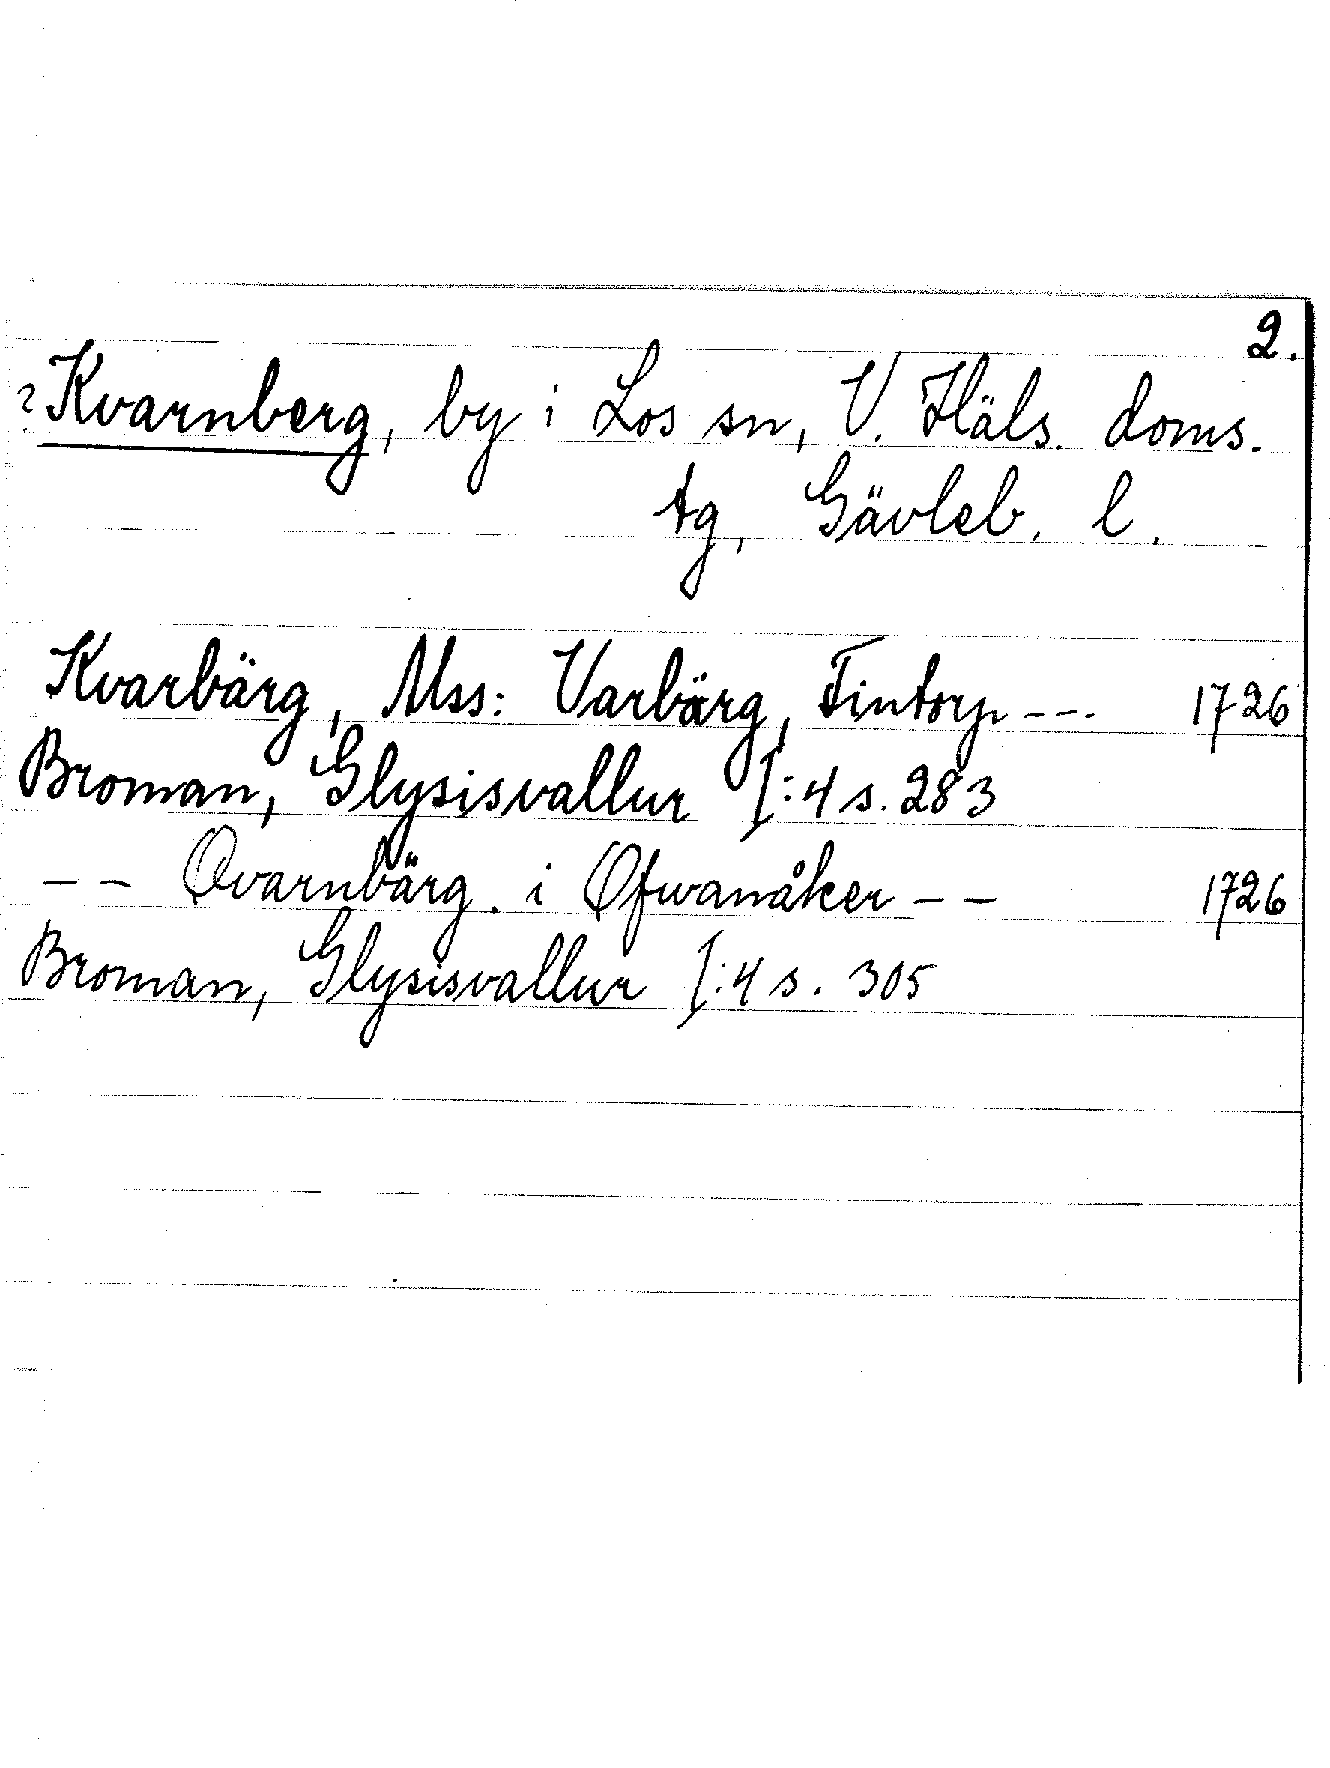 2.
? Kvarnberg, by i Los sn, V. Häls. doms.
tg, Gävleb. l.
Kvarbärg, Mss: Varbärg, Fintorp --- 1726
Broman, Glysisvallur I:4 s. 283
-- Qvarnbärg. i Øfwanåker -- 1726
Broman, Glysisvallur I:4 s. 305